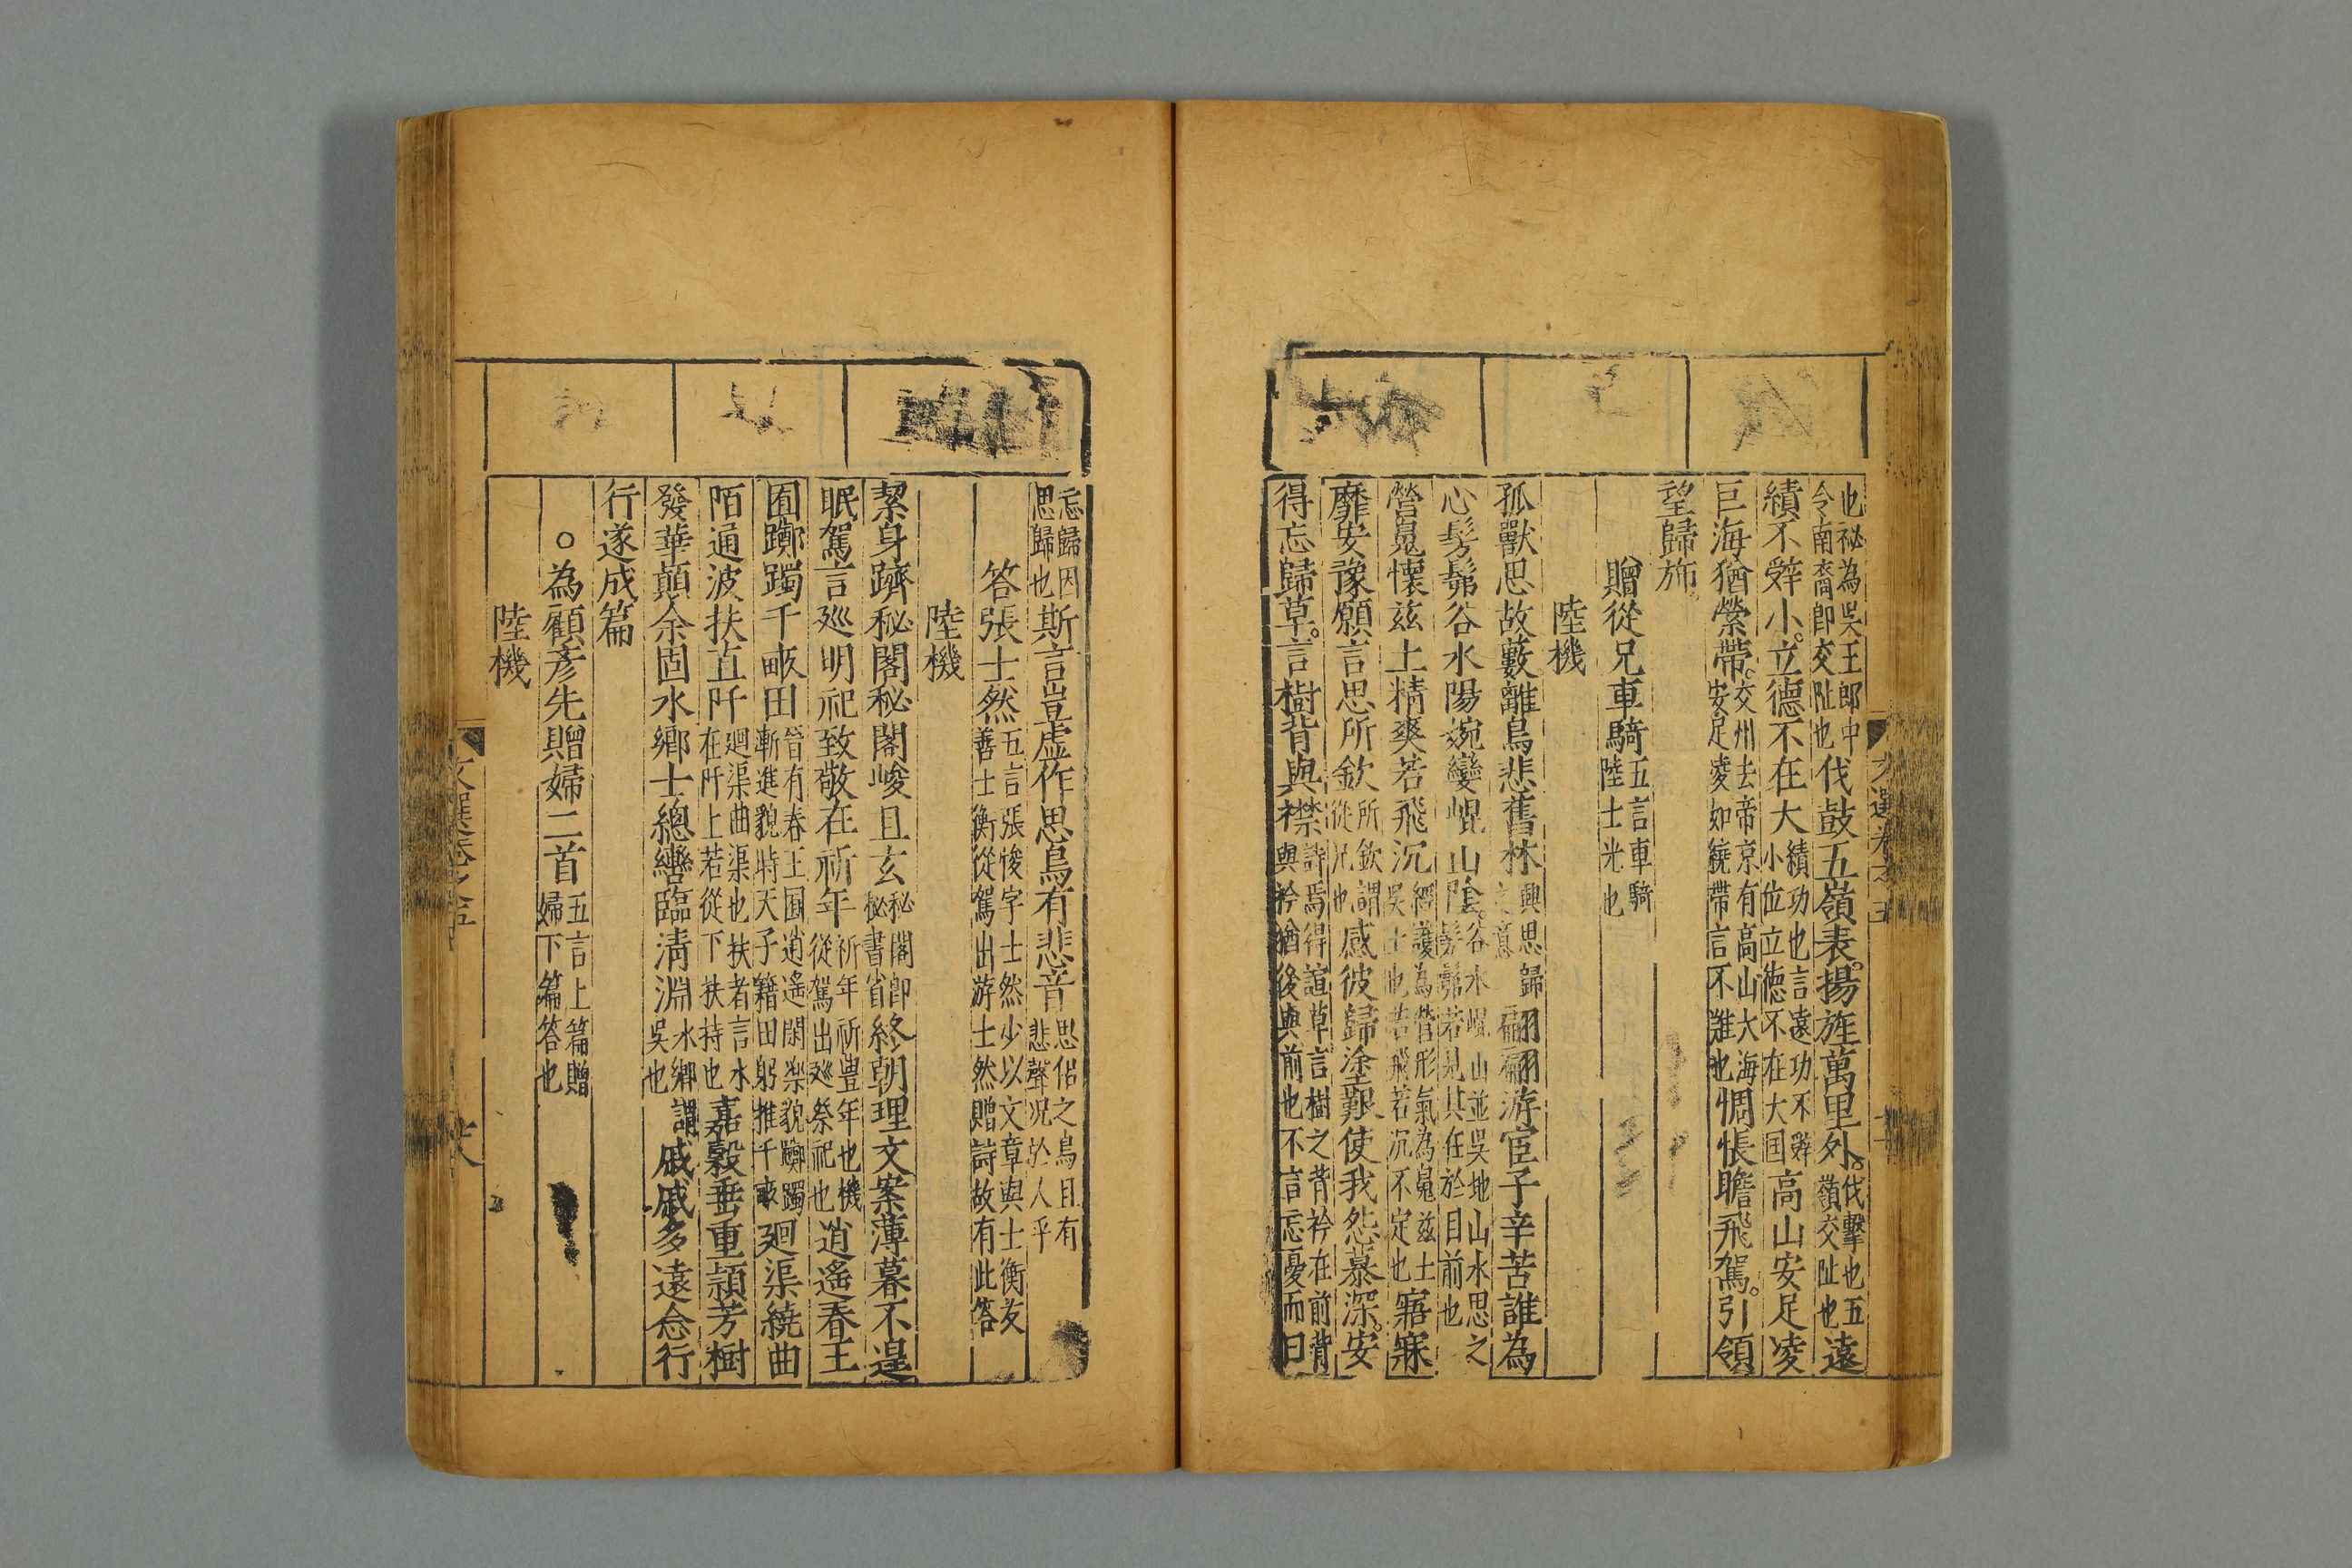 也祕為吳王郎中
令南裔即交阯也伐鼓五嶺表揚旌萬里外伐擊也五
嶺交阯也遠
績不辤小立德不在大績功也言遠功不辤
小位立德不在大国高山安足凌
巨海猶縈帶交州去帝京有高山大海
安足凌如繞帶言不難也惆悵瞻飛駕引領
望歸斾
贈從兄車騎五言車騎
陸士光也
陸機
孤獸思故藪離鳥悲舊林興思歸
之意翩翩游宦子辛苦誰為
心髣髴谷水陽婉孌崐山陰谷水崐山並吳地山水思之
髣髴若見其在於目前也
營魂懷兹土精爽若飛沉經護為營形氣為魂兹土
吳土也若飛若沉不定也寤寐
靡安豫願言思所欽所欽謂
從兄也感彼歸塗艱使我怨慕深安
得忘歸草言樹背與襟詩焉得諠草言樹之背衿在前背
與衿猶後與前也不言忘憂而曰
忘歸因
思歸也斯言豈虛作思鳥有悲音思侣之鳥且有
悲聲况於人乎
答張士然五言張悛字士然少以文章與士衡友
善士衡從駕出游士然贈詩故有此答
陸機
絜身躋秘閣秘閣峻且玄秘閣即
秘書省終朝理文案薄暮不遑
眠駕言廵明祀致敬在祈年祈年祈豊年也機
從駕出廵祭祀也逍遙春王
囿躑躅千畝田晉有春王囿逍遙閑樂貌躑躅
漸進貌時天子籍田躬推千畝廻渠繞曲
陌通波扶直阡廻渠曲渠也扶者言水
在阡上若從下扶持也嘉穀垂重穎芳樹
發華顛余固水鄉士總轡臨清淵水鄉謂
吳也戚戚多遠念行
行遂成篇
○為顧彥先贈婦二首五言上篇贈
婦下篇答也
陸機